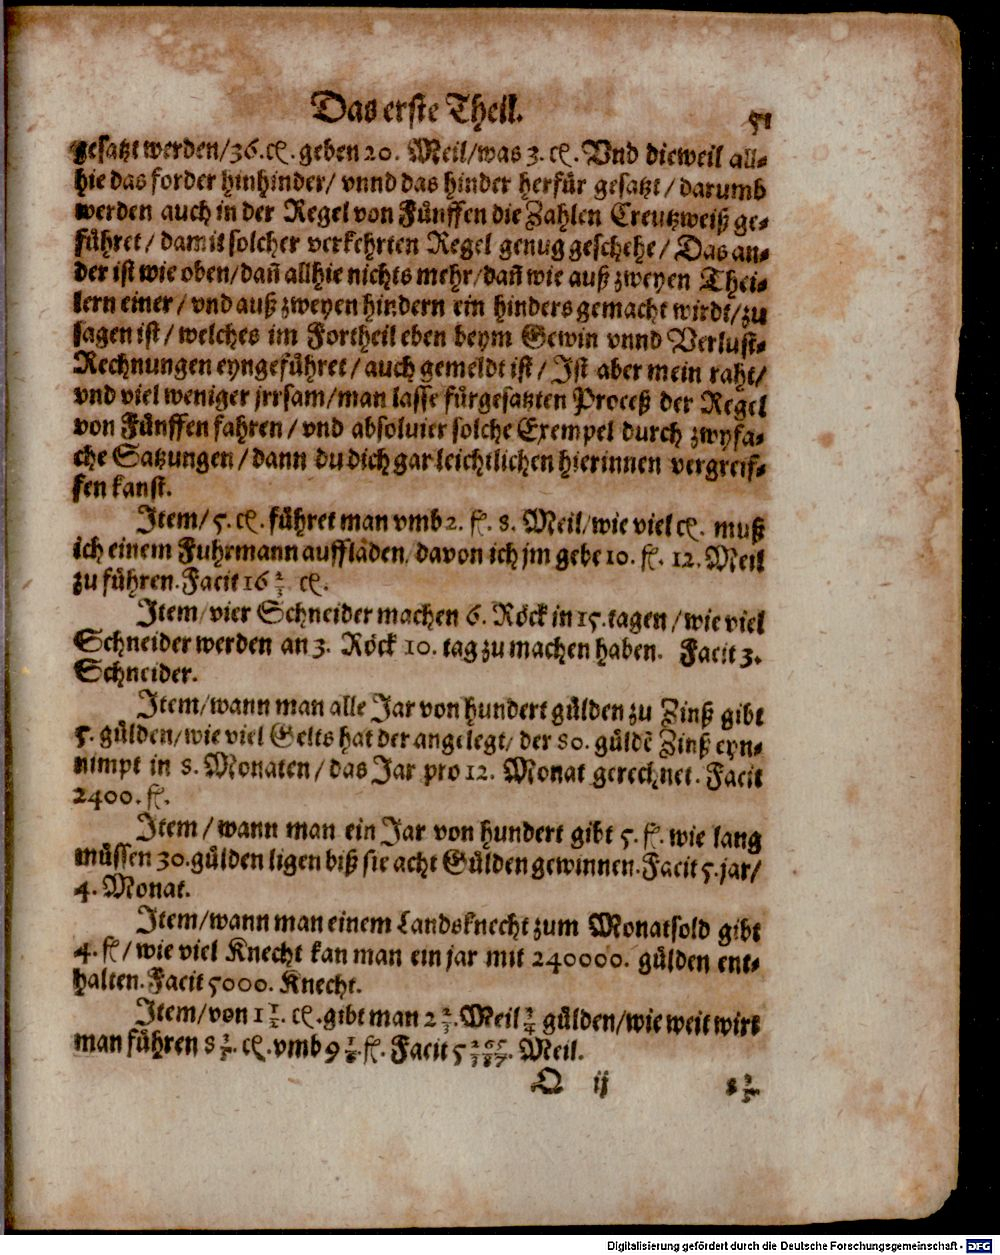 Das erste Theil. 51
gesatzt werden/36. ct. geben 20. Meil/was 3. ct. Vnd dieweil all-
hie das forder hinhinder/ vnnd das hinder herfür gesatzt / darumb
werden auch in der Regel von Fünffen die Zahlen Creutzweiß ge-
führet / damit solcher verkehrten Regel genug geschehe / Das an-
der ist wie oben/dañ allhie nichts mehr/dañ wie auß zweyen Thei-
lern einer / vnd auß zweyen hindern ein hinders gemacht wirdt/zu
sagen ist / welches im Fortheil eben beym Gewin vnnd Verlust-
Rechnungen eyngeführet / auch gemeldt ist / Ist aber mein raht/
vnd viel weniger jrrsam/man lasse fürgesatzten Proceß der Regel
von Fünffen fahren / vnd absoluier solche Exempel durch zwyfa-
che Satzungen / dann du dich gar leichtlichen hierinnen vergreif-
fen kanst.
Item/ 5. ct. führet man vmb 2. fl. 8. Meil/wie viel ct. muß
ich einem Fuhrmann auffladen/davon ich jm gebe 10. fl. 12. Meil
zu führen. Facit 16 2/3 ct.
Item/vier Schneider machen 6. Röck in 15. tagen / wie viel
Schneider werden an 3. Röck 10. tag zu machen haben. Facit 3.
Schneider.
Item/wann man alle Jar von hundert gülden zu Zinß gibt
5. gülden/wie viel Gelts hat der angelegt/ der 80. güldē Zinß eyn-
nimpt in 8. Monaten / das Jar pro 12. Monat gerechnet. Facit
2400. fl.
Item / wann man ein Jar von hundert gibt 5. fl. wie lang
müssen 30. gülden ligen biß sie acht Gülden gewinnen. Facit 5. jar/
4. Monat.
Item/wann man einem Landsknecht zum Monatsold gibt
4. fl/ wie viel Knecht kan man ein jar mit 240000. gülden ent-
halten. Facit 5000. Knecht.
Item/von 1 1/2. ct. gibt man 2 2/3. Meil 3/4 gülden/wie weit wirt
man führen 8 2/5. ct. vmb 9 1/6. fl. Facit 5 Meil.
O ij 8 2/5
Digitalisierung gefördert durch die Deutsche Forschungsgemeinschaft - DFG